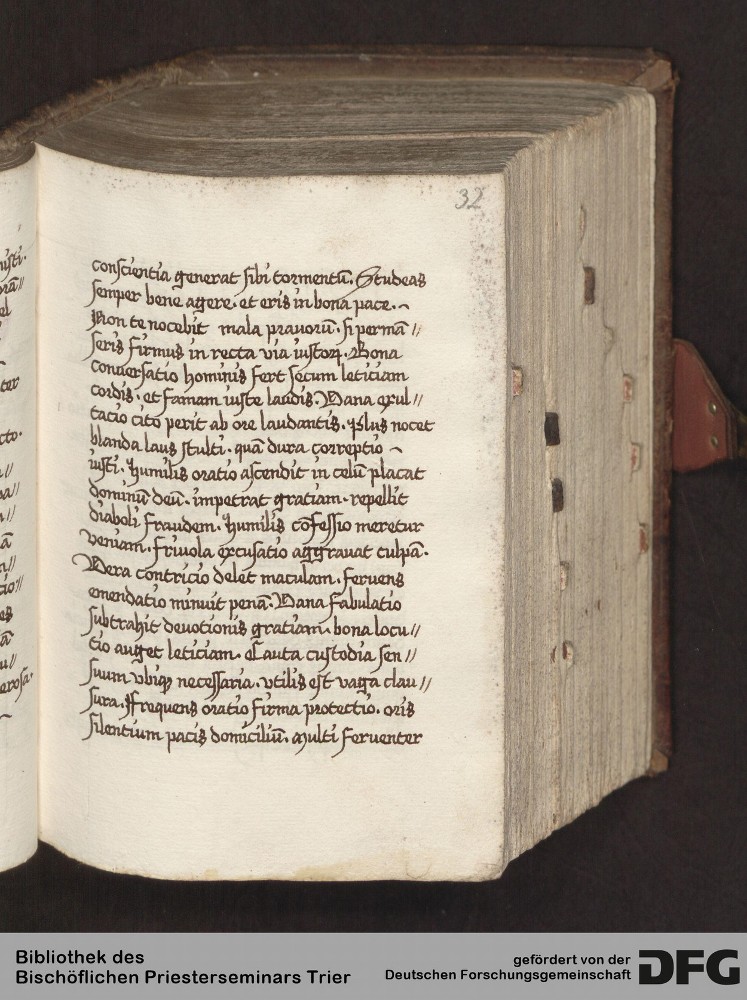 32
conscientia generat sibi tormentū. Studeas
semper bene agere. et eris in bona pace.
Non te nocebit mala prauorū. si permā//
seris firmus in recta via iustoꝝ. Bona
conuersatio hominis fert secum leticiam
cordis. et famam iuste laudis. Vana exul//
tacio cito perit ab ore laudantis. Plus nocet
blanda laus stulti. quā dura correptio
iusti. Humilis oratio ascendit in celū placat
dominū deū. impetrat gratiam. repellit
diaboli fraudem. Humilis cōfessio meretur
veniam. friuola excusatio aggrauat culpā.
Vera contricio delet maculam. feruens
emendatio minuit penā. Vana fabulatio
subtrahit deuotionis gratiam. bona locu//
tio auget leticiam. Cauta custodia sen//
suum vbiqꝫ necessaria. vtilis est vaga clau//
sura. Frequens oratio firma protectio. oris
silentium pacis domiciliū. Multi feruenter
Bibliothek des
Bischöflichen Priesterseminars Trier
gefördert von der
Deutschen Forschungsgemeinschaft
DFG